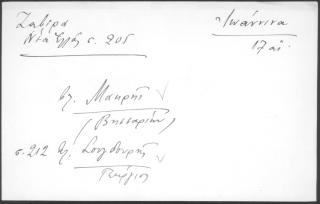 Ζαβίρα
Νέα Ἑλλάς σ. 205
Ἰωάννινα
17 αἰ.
βλ. Μακρῆς
(Βησσαρίων)
σ. 212 βλ. Σουγδουρῆς
Γεώργιος